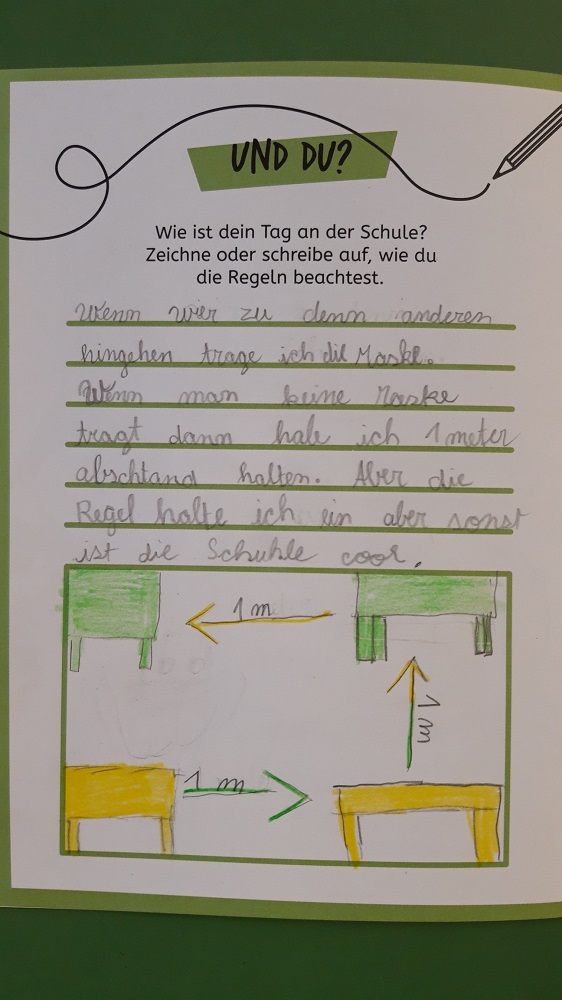 UND DU?
Wie ist dein Tag an der Schule?
Zeichne oder schreibe auf, wie du
die Regeln beachtest.
Wenn wier zu denn anderen
hingehen trage ich die Maske.
Wenn man keine Maske
tragt dann habe ich 1 meter
abschtand halten. Aber die
Regel halte ich ein aber sonst
ist die Schuhle cool.
1 m
1 m
1 m